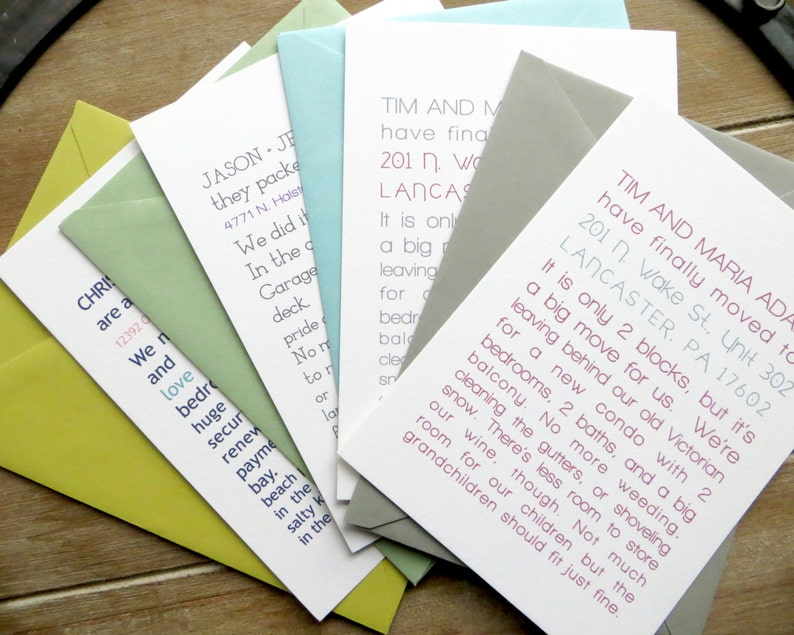 CHRIS
are a
12392
We
and
love
bedro
huge
secur
renew
payme
bay.
beach
in the
salty
in the
JASON + JE
they packe
4771 N. Halst
We did it
In the
Garage
deck.
pride
No m
to
or
TIM AND M
have final
201 N. Wa
LANCASTE
It is only
a big mov
leaving
for a
bedr
balc
clea
snow
TIM AND MARIA ADA
have finally moved to
201 N. Wake St., Unit 302
LANCASTER, PA 17602
It is only 2 blocks, but it's
a big move for us. We're
leaving behind our old Victorian
for a new condo with 2
bedrooms, 2 baths, and a big
balcony. No more weeding,
cleaning the gutters, or shoveling
snow. There's less room to store
our wine, though. Not much
room for our children but the
grandchildren should fit just fine.